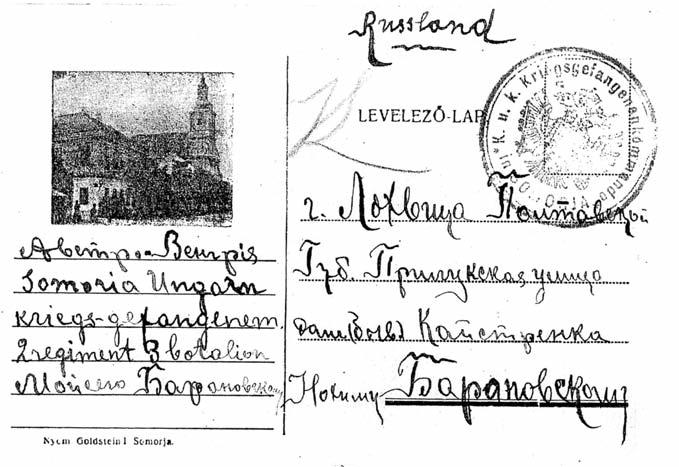 Russland
LEVELEZŐ-LAP
K. u. k. Kriegsgefangenenkommando
Австро-Венгрія
Somoria Ungarn
Kriegs-gefangenem.
2 regiment 3 batalion
Мойсею Барановскому
г. Лохвица Полтавской
Губ. Прилукская улица
дом (бывш.) Кайстренка
Нохиму Барановскому
Nyom Goldstein I Somorja.